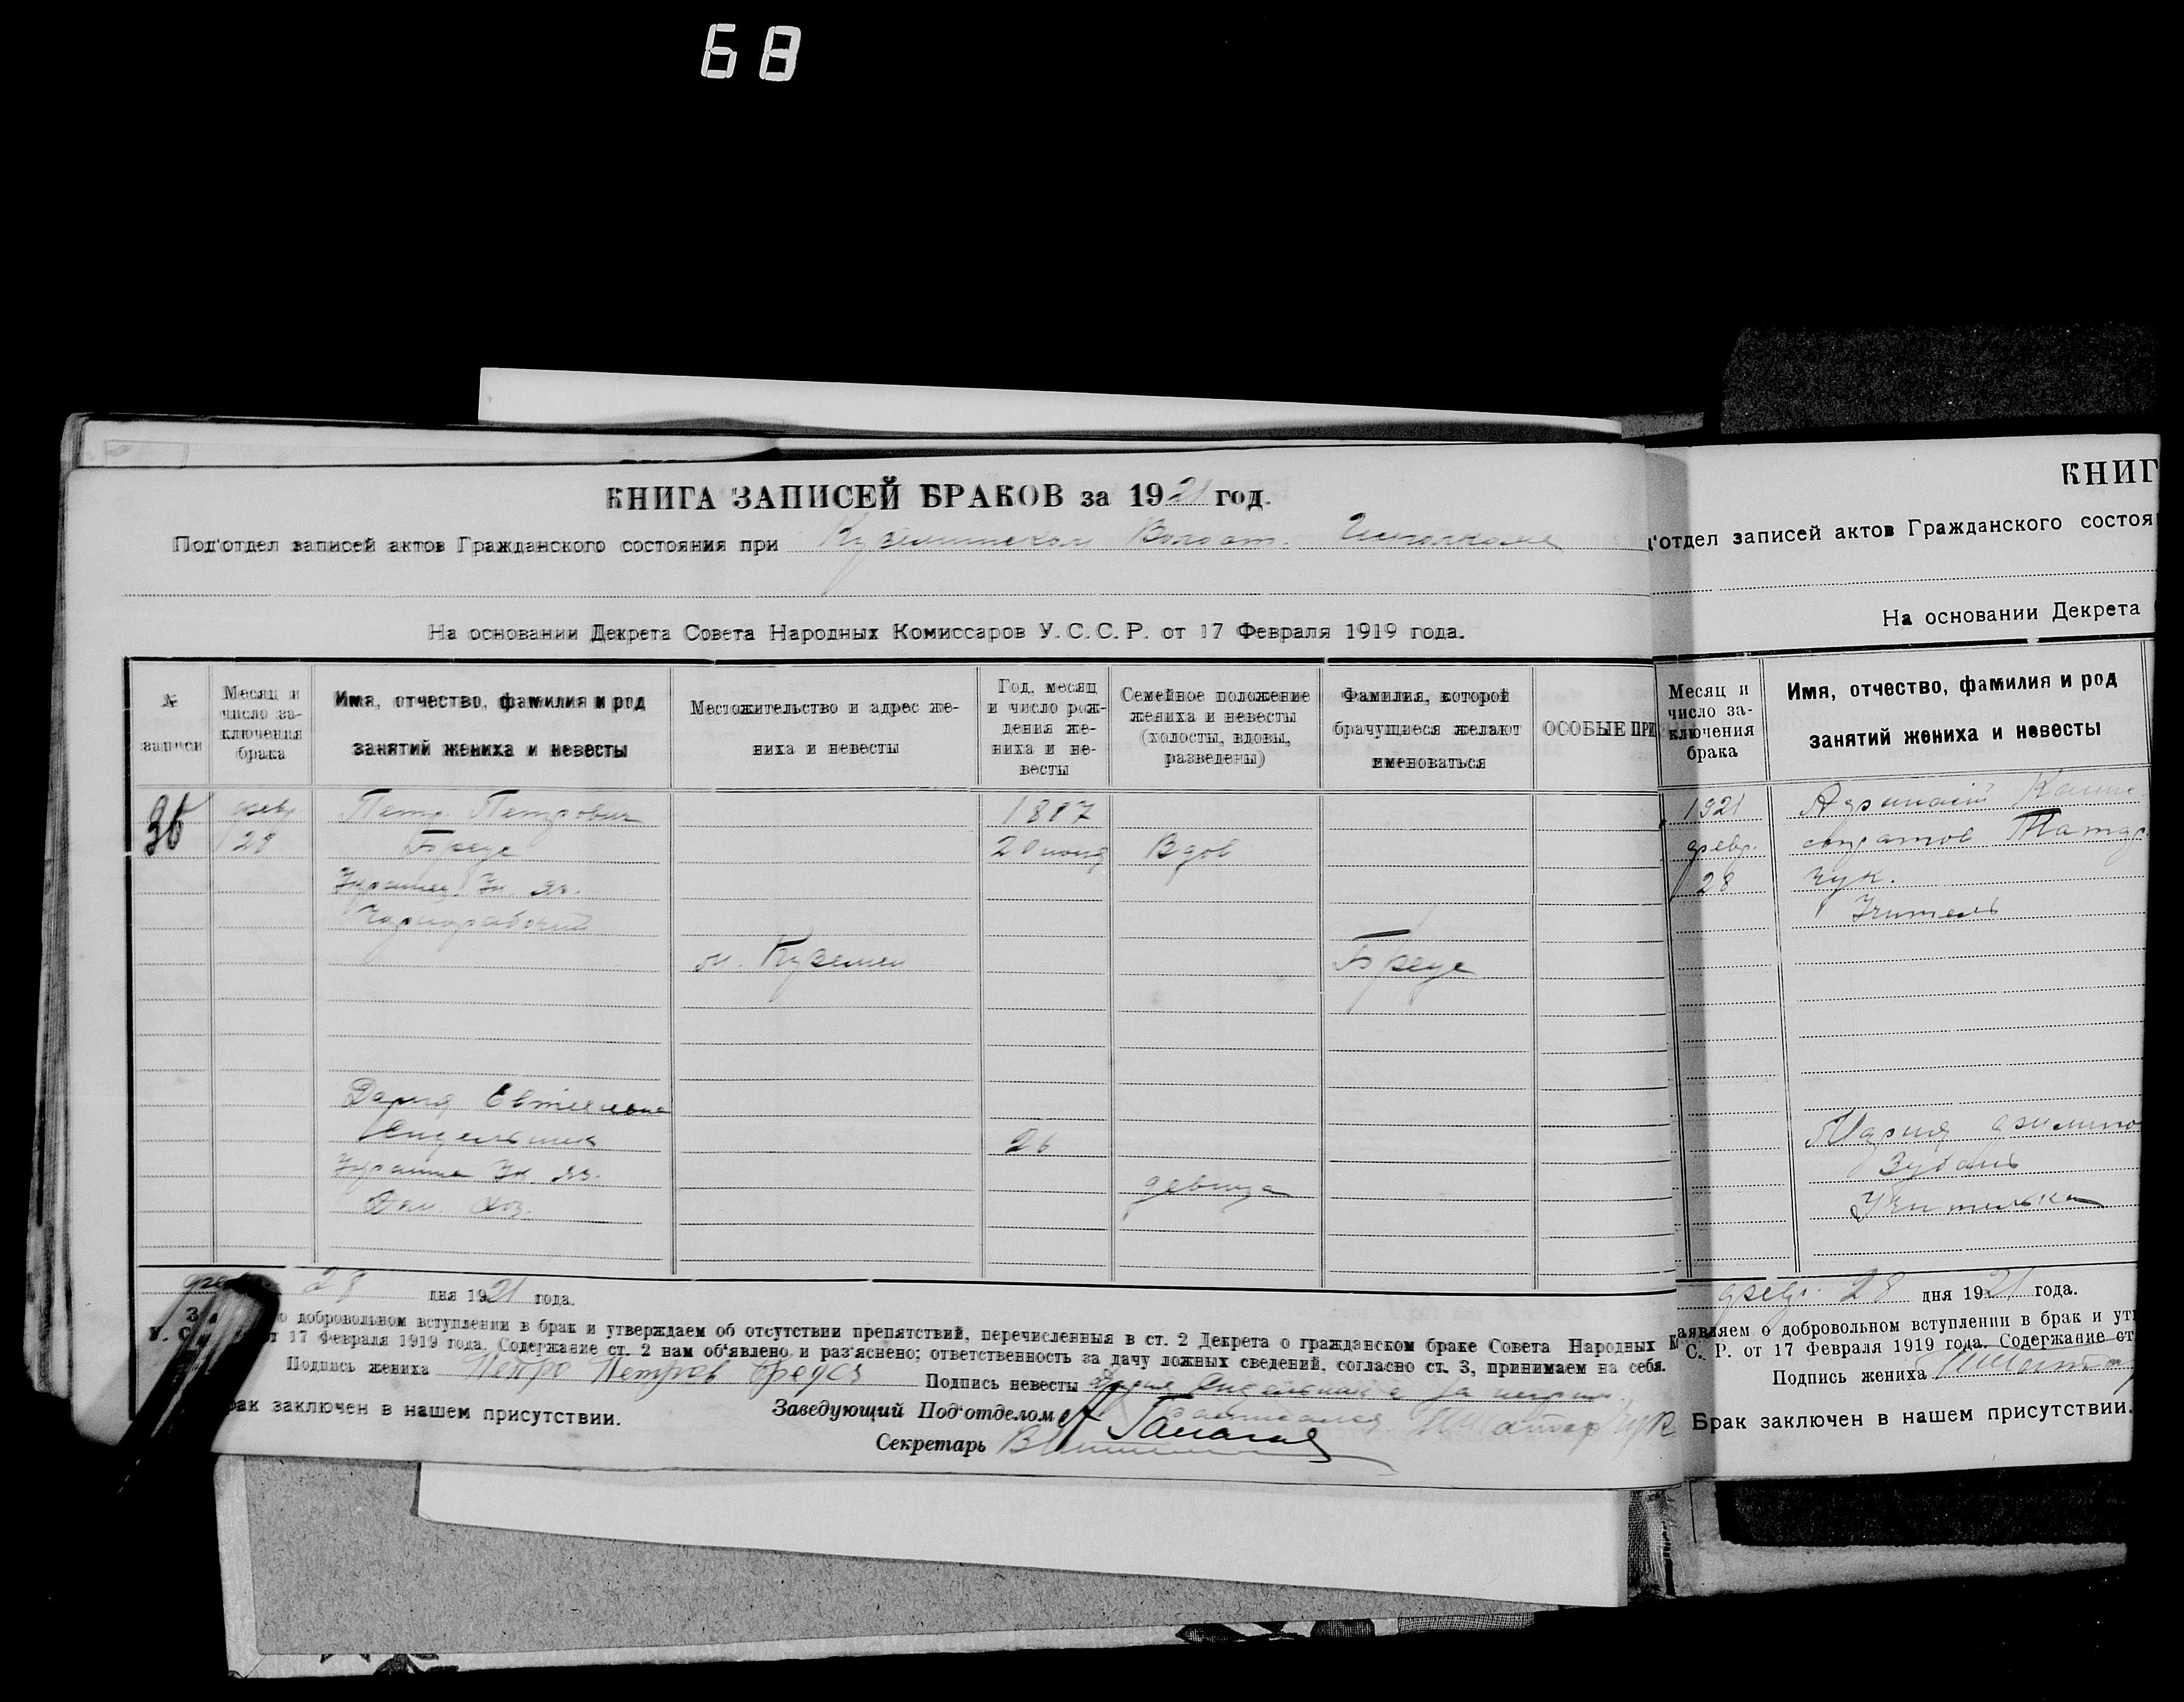 68
КНИГА ЗАПИСЕЙ БРАКОВ за 1921 год.
Под'отдел записей актов Гражданского состояния при Волост.
На основании Декрета Совета Народных Комиссаров У. С. С. Р. от 17 Февраля 1919 года.
№ записи
Месяц и число за-ключения брака
Имя, отчество, фамилия и род занятий жениха и невесты
Местожительство и адрес же-ниха и невесты
Год, месяц и число рож-дения же-ниха и не-весты
Семейное положение жениха и невесты (холосты, вдовы, разведены)
Фамилия, которой брачущиеся желают именоваться
ОСОБЫЕ ПРИ
36
февр.
28
Петр Петрович
Бреус
Чернорабочий
1887
20 июня
Вдов
м. Куземин
Бреус
Дария
26
девица
февр. 28 дня 1921 года.
о добровольном вступлении в брак и утверждаем об отсутствии препятствий, перечисленныя в ст. 2 Декрета о гражданском браке Совета Народных К
т 17 Февраля 1919 года. Содержание ст. 2 нам об'явлено и раз'яснено; ответственность за дачу ложных сведений, согласно ст. 3, принимаем на себя.
Подпись жениха Петро Петров Бреус
Подпись невесты Дария
рак заключен в нашем присутствии.
Заведующий Под'отделом
Секретарь
КНИГ
'отдел записей актов Гражданского состоя
На основании Декрета
Месяц и число за-ключения брака
Имя, отчество, фамилия и род занятий жениха и невесты
1921
февр.
28
чук.
Учитель
Мария
Зубань
Учителька
февр. 28 дня 1921 года.
аявляем о добровольном вступлении в брак и ут
С. Р. от 17 Февраля 1919 года. Содержание ст
Подпись жениха
Брак заключен в нашем присутствии.